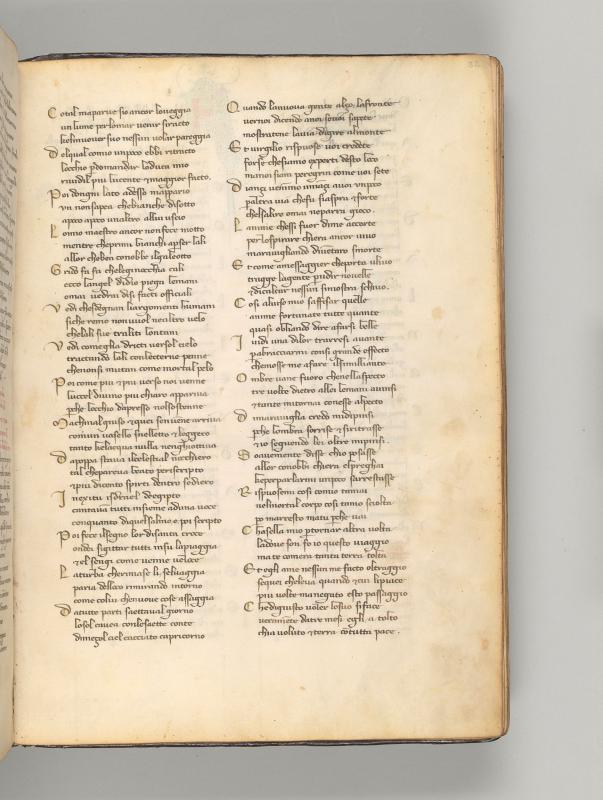 C otal maparue sio ancor loueggia
un lume perlomar uenir sitracto
kelmuouer suo nessun uolar pareggia
D elqual comio unpoco ebbi ritracto
locchio pdomandar loduca mio
riuidil piu lucente & maggior facto.
P oi dongni lato adesso mappario
vn nonsapea chebianche disotto
apoco apoco unaltro allui uscio
L omio maestro ancor nonfece motto
mentre cheprimi bianchi apser lali
allor choben conobbe ilgaleotto
G rido fa fa cheleginocchia cali
ecco langel didio piega lemani
omai uedrai disi facti officiali
V edi chesdegnan liargomenti humani
siche remo nonuuol nealtro uelo
chelali sue traliti lontani
V edi comeglia dricti uersol uelo
tractando lali conlecterne penne
chenonsi mutan come mortal pelo
P oi come piu & piu uerso noi uenne
luccel diuino piu chiaro apparia
pche locchio dapresso nolsostenne
M achinal giuso & quei senuene arriua
conun uasello snelletto & leggero
tanto kelacqua nulla nenghiottiua
D apoppa staua ilcelestial nocchiero
tal cheparea beato periscripto
& piu dicento spirti dentro sediero
I nexitu isdrael deegipto
cantauan tutti insieme aduna uoce
conquanto diquelsalmo e poi scripto
P oi fece ilsegno lor disanta croce
ondei sigittar tutti insu lapiaggia
& el sengi come uenne ueloce
L aturba cherimase li seluaggia
paria delloco rimirando intorno
come colui chenuoue cose assaggia
D atutte parti saettaual giorno
losol cauea conlesaette conte
dimeçol ciel cacciato capricorno
Q uando lanuoua gente alço lafronte
verno i dicendo anoi seuoi sapete
mostratene lauia digire almonte
E t uirgilio rispuose uoi credete
forse chesiamo experti desto loco
manoi sian peregrin come uoi sete
D ianci uenimo innaçi auoi unpoco
paltra uia chefu siaspra & forte
chelsalire omai neparra gioco.
L anime chessi fuor dime accorte
perlospirare chiera ancor uiuo
marauigliando diuetaro smorte
E t come amessaggier cheporta uliuo
tragge lagente pudir nouelle
& dicalcar nessun simostra schiuo.
C osi aluiso mio saffisar quelle
anime fortunate tutte quante
quasi obliando dire afarsi belle
I uidi una dilor trarresi auante
pabracciarmi consi grande effecto
chemosse me afare ilsimilliante
O mbre uane fuoro chenellaspecto
tre uolte dietro allei lemani auinsi
& tante mitornai conesse alpecto
D imarauiglia credo midipinsi
pche lombra sorrise & siritrasse
& io seguendo lei oltre mipinsi.
S oauemente disse chio posasse
allor conobbi chiera elpreghai
keperparlarmi unpoco sarrestasse
R ispuosemi cosi comio tamai
nelmortal corpo cosi tamo sciolta
po marresto matu pche uai
C hasella mio ptornar altra uolta
ladoue son fo io questo uiaggio
mate comera tanta terra tolta
E t egli ame nessun me facto oltraggio
sequei cheleua quando & cui lipiace
piu uolte manegato esto passaggio
C he digiusto uoler losuo siface
veramete datre mesi egli a tolto
chia uoluto & terra cotutta pace.